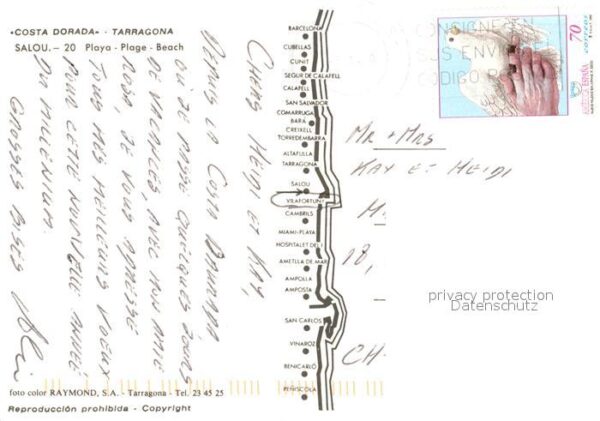 «COSTA DORADA» - TARRAGONA
SALOU. – 20 Playa - Plage - Beach
CHERS HEIDI ET KAY,
DEPUIS LA COSTA DAURADA
OÙ JE PASSE QUELQUES JOURS
DE VACANCES, AVEC MON AMIE
JE VOUS ADRESSE
TOUS MES MEILLEURS VOEUX
POUR CETTE NOUVELLE ANNÉE
DU MILLENIUM.
GROSSES BISES
foto color RAYMOND, S.A. - Tarragona - Tel. 23 45 25
Reproducción prohibida - Copyright
BARCELONA
CUBELLAS
CUNIT
SEGUR DE CALAFELL
CALAFELL
SAN SALVADOR
COMARRUGA
BARÁ
CREIXELL
TORREDEMBARRA
ALTAFULLA
TARRAGONA
SALOU
VILAFORTUNY
CAMBRILS
MIAMI-PLAYA
HOSPITALET DEL I.
AMETLLA DE MAR
AMPOLLA
AMPOSTA
SAN CARLOS
VINAROZ
BENICARLÓ
PEÑISCOLA
CONSIGNE EN
SUS ENVIOS EL
CODIGO POSTAL
70
correos
ESPAÑA
MR + MRS
KAY ET HEIDI
M
18,
CH-
privacy protection
Datenschutz